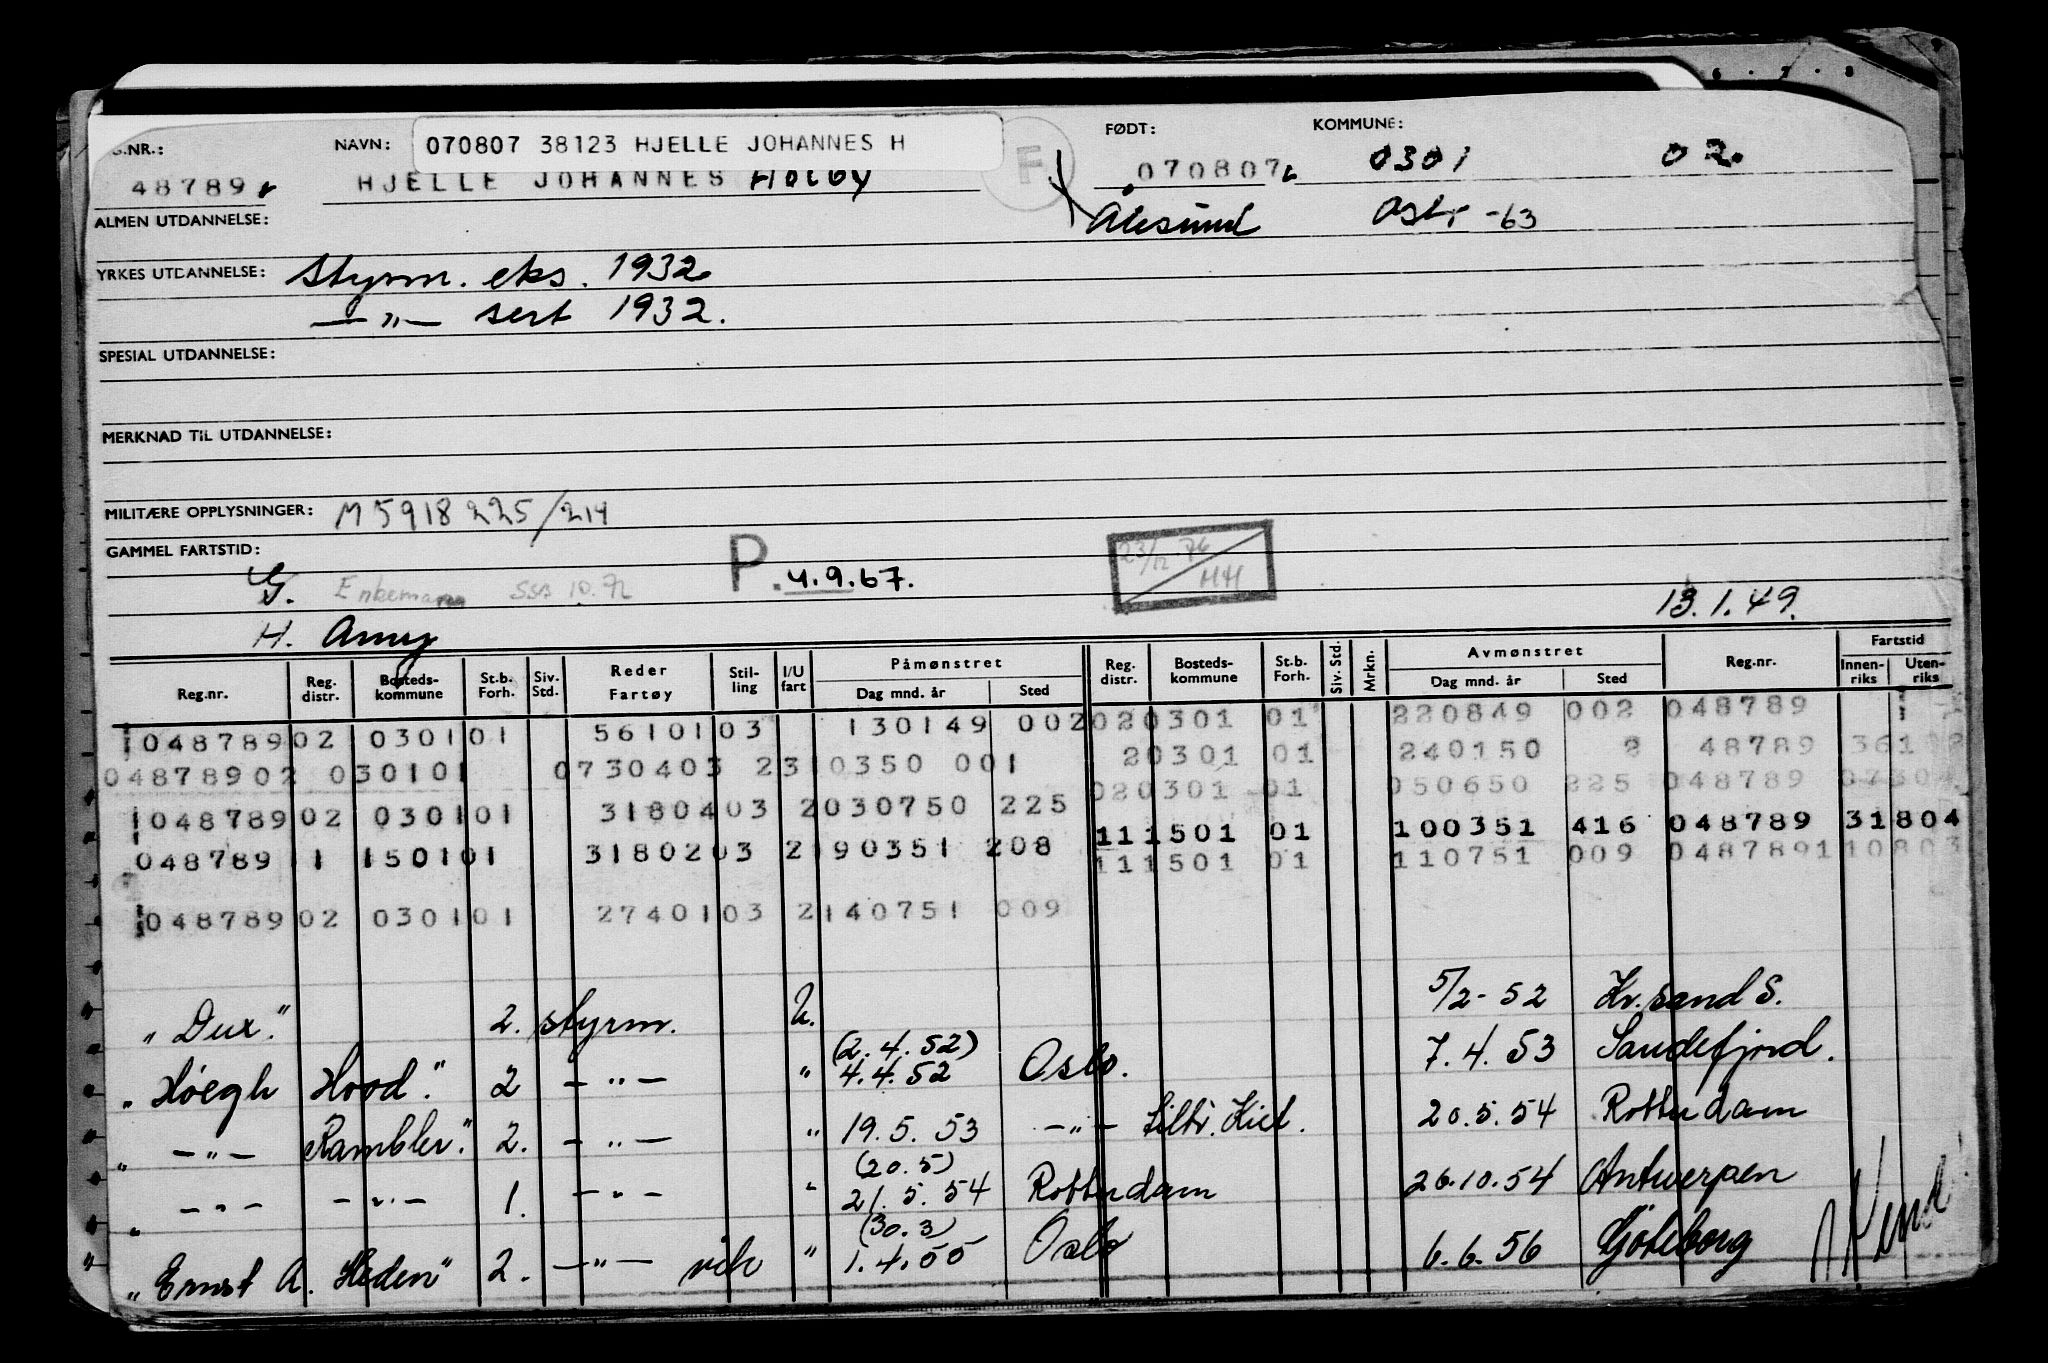 S.NR.: NAVN: 070807 38123 HJELLE JOHANNES H F FØDT: KOMMUNE:
48789 HJELLE JOHANNES Holby 070807 0301 02
ALMEN UTDANNELSE: Ålesund Oslo -63
YRKES UTDANNELSE: Styrm. eks. 1932
—"— sert 1932.
SPESIAL UTDANNELSE:
MERKNAD TIL UTDANNELSE:
MILITÆRE OPPLYSNINGER: M 5918 225/214
GAMMEL FARTSTID: P. 4.9.67. 23/12 76 HH
G. Enkemann SSB 10.72 13.1.49.
H. Anny
Reg.nr. Reg. distr. Bosteds-kommune St.b. Forh. Siv. Std. Reder Fartøy Stil-ling I/U fart Påmønstret Dag mnd. år Sted Reg. distr. Bosteds-kommune St.b. Forh. Siv. Std. Mrkn. Avmønstret Dag mnd. år Sted Reg.nr. Fartstid Innen-riks Uten-riks
048789 02 0301 01 56101 03 130149 002 02 0301 01 220849 002 048789
04878902 030101 0730403 2310350 001 20301 01 240150 2 48789
020301 01 050650 225 048789
048789 02 0301 01 31804 03 2030750 225 111501 01 100351 416 048789 31804
048789 11 1501 01 31802 03 2190351 208 111501 01 110751 009 048789 1 10803
048789 02 0301 01 27401 03 2140751 009
"Dux". 2. styrm. U. 5/2-52 Kr.sand S.
"Høegh Hood". 2 —"— " (2.4.52) 4.4.52 Oslo. 7.4.53 Sandefjord.
" —"— Rambler". 2. —"— " 19.5.53 —"— 20.5.54 Rotterdam
" —"— —"— 1. —"— " (20.5) 21.5.54 Rotterdam 26.10.54 Antwerpen
"Ernst A. Heden" 2. —"— vik " (30.3) 1.4.55 Oslo 6.6.56 Göteborg